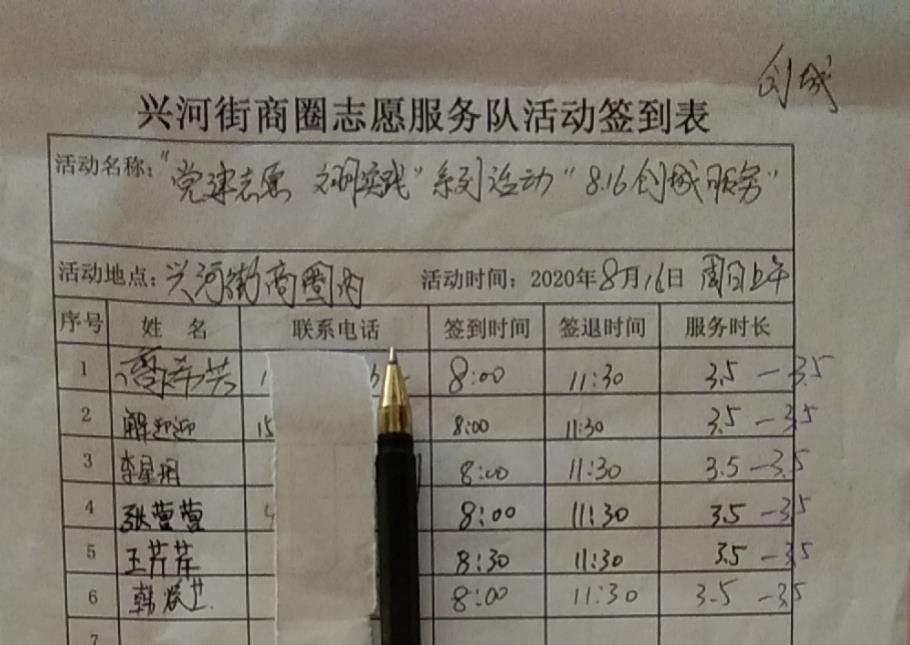 创城
兴河街商圈志愿服务队活动签到表
活动名称："党建志愿 文明实践"系列活动"8.16创城服务"
活动地点：兴河街商圈内 活动时间：2020年8月16日 周日上午
序号 姓 名 联系电话 签到时间 签退时间 服务时长
1 8:00 11:30 3.5 - 3.5
2 解迎迎 15 8:00 11:30 3.5 - 3.5
3 李星明 8:00 11:30 3.5 - 3.5
4 张营营 8:00 11:30 3.5 - 3.5
5 王芹芹 8:30 11:30 3.5 - 3.5
6 韩 8:00 11:30 3.5 - 3.5
7